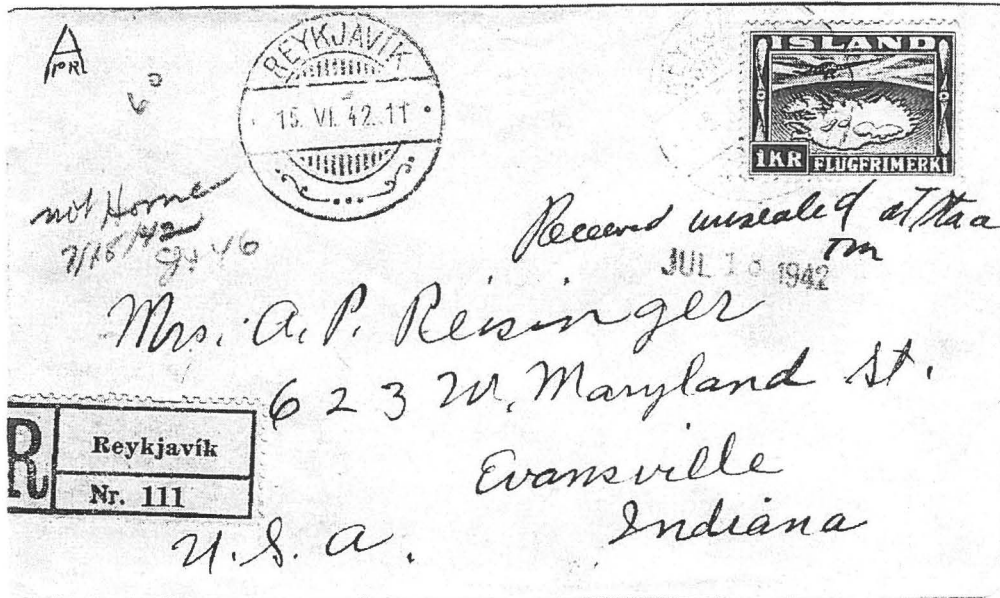 A
PR
REYKJAVÍK
15. VI. 42. 11
ISLAND
1KR FLUGFRIMERKI
not Home
7/15/42
Received unsealed at Sta a
JUL 1 1942
Mrs. A. P. Reisinger
623 W. Maryland St.
Evansville
Indiana
U.S.A.
R
Reykjavík
Nr. 111